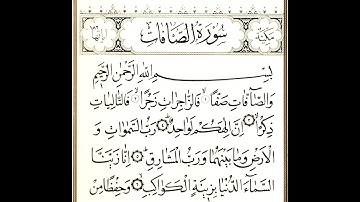 سُورَةُ الصَّافَّاتِ
مَكِّيَّةٌ
بِسْمِ اللّٰهِ الرَّحْمٰنِ الرَّحِيمِ
وَالصَّافَّاتِ صَفًّا فَالزَّاجِرَاتِ زَجْرًا فَالتَّالِيَاتِ
ذِكْرًا إِنَّ إِلٰهَكُمْ لَوَاحِدٌ رَبُّ السَّمٰوَاتِ وَ
الْأَرْضِ وَمَا بَيْنَهُمَا وَرَبُّ الْمَشَارِقِ إِنَّا زَيَّنَّا
السَّمَاءَ الدُّنْيَا بِزِينَةٍ الْكَوَاكِبِ وَحِفْظًا مِنْ